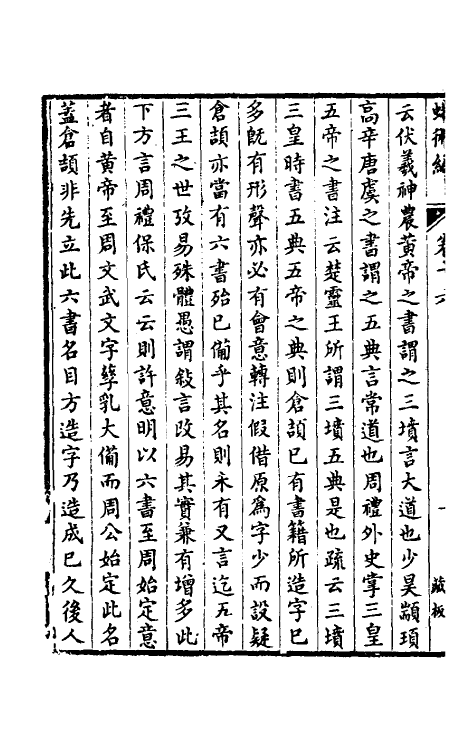 蛾術編 卷十六 一 藏板
云伏羲神農黃帝之書謂之三墳言大道也少昊顓頊
高辛唐虞之書謂之五典言常道也周禮外史掌三皇
五帝之書注云楚靈王所謂三墳五典是也疏云三墳
三皇時書五典五帝之典則倉頡已有書籍所造字已
多旣有形聲亦必有會意轉注假借原爲字少而設疑
倉頡亦當有六書殆已備乎其名則未有又言迄五帝
三王之世改易殊體愚謂敍言改易其實兼有增多此
下方言周禮保氏云云則許意明以六書至周始定意
者自黃帝至周文武文字孳乳大備而周公始定此名
蓋倉頡非先立此六書名目方造字乃造成已久後人